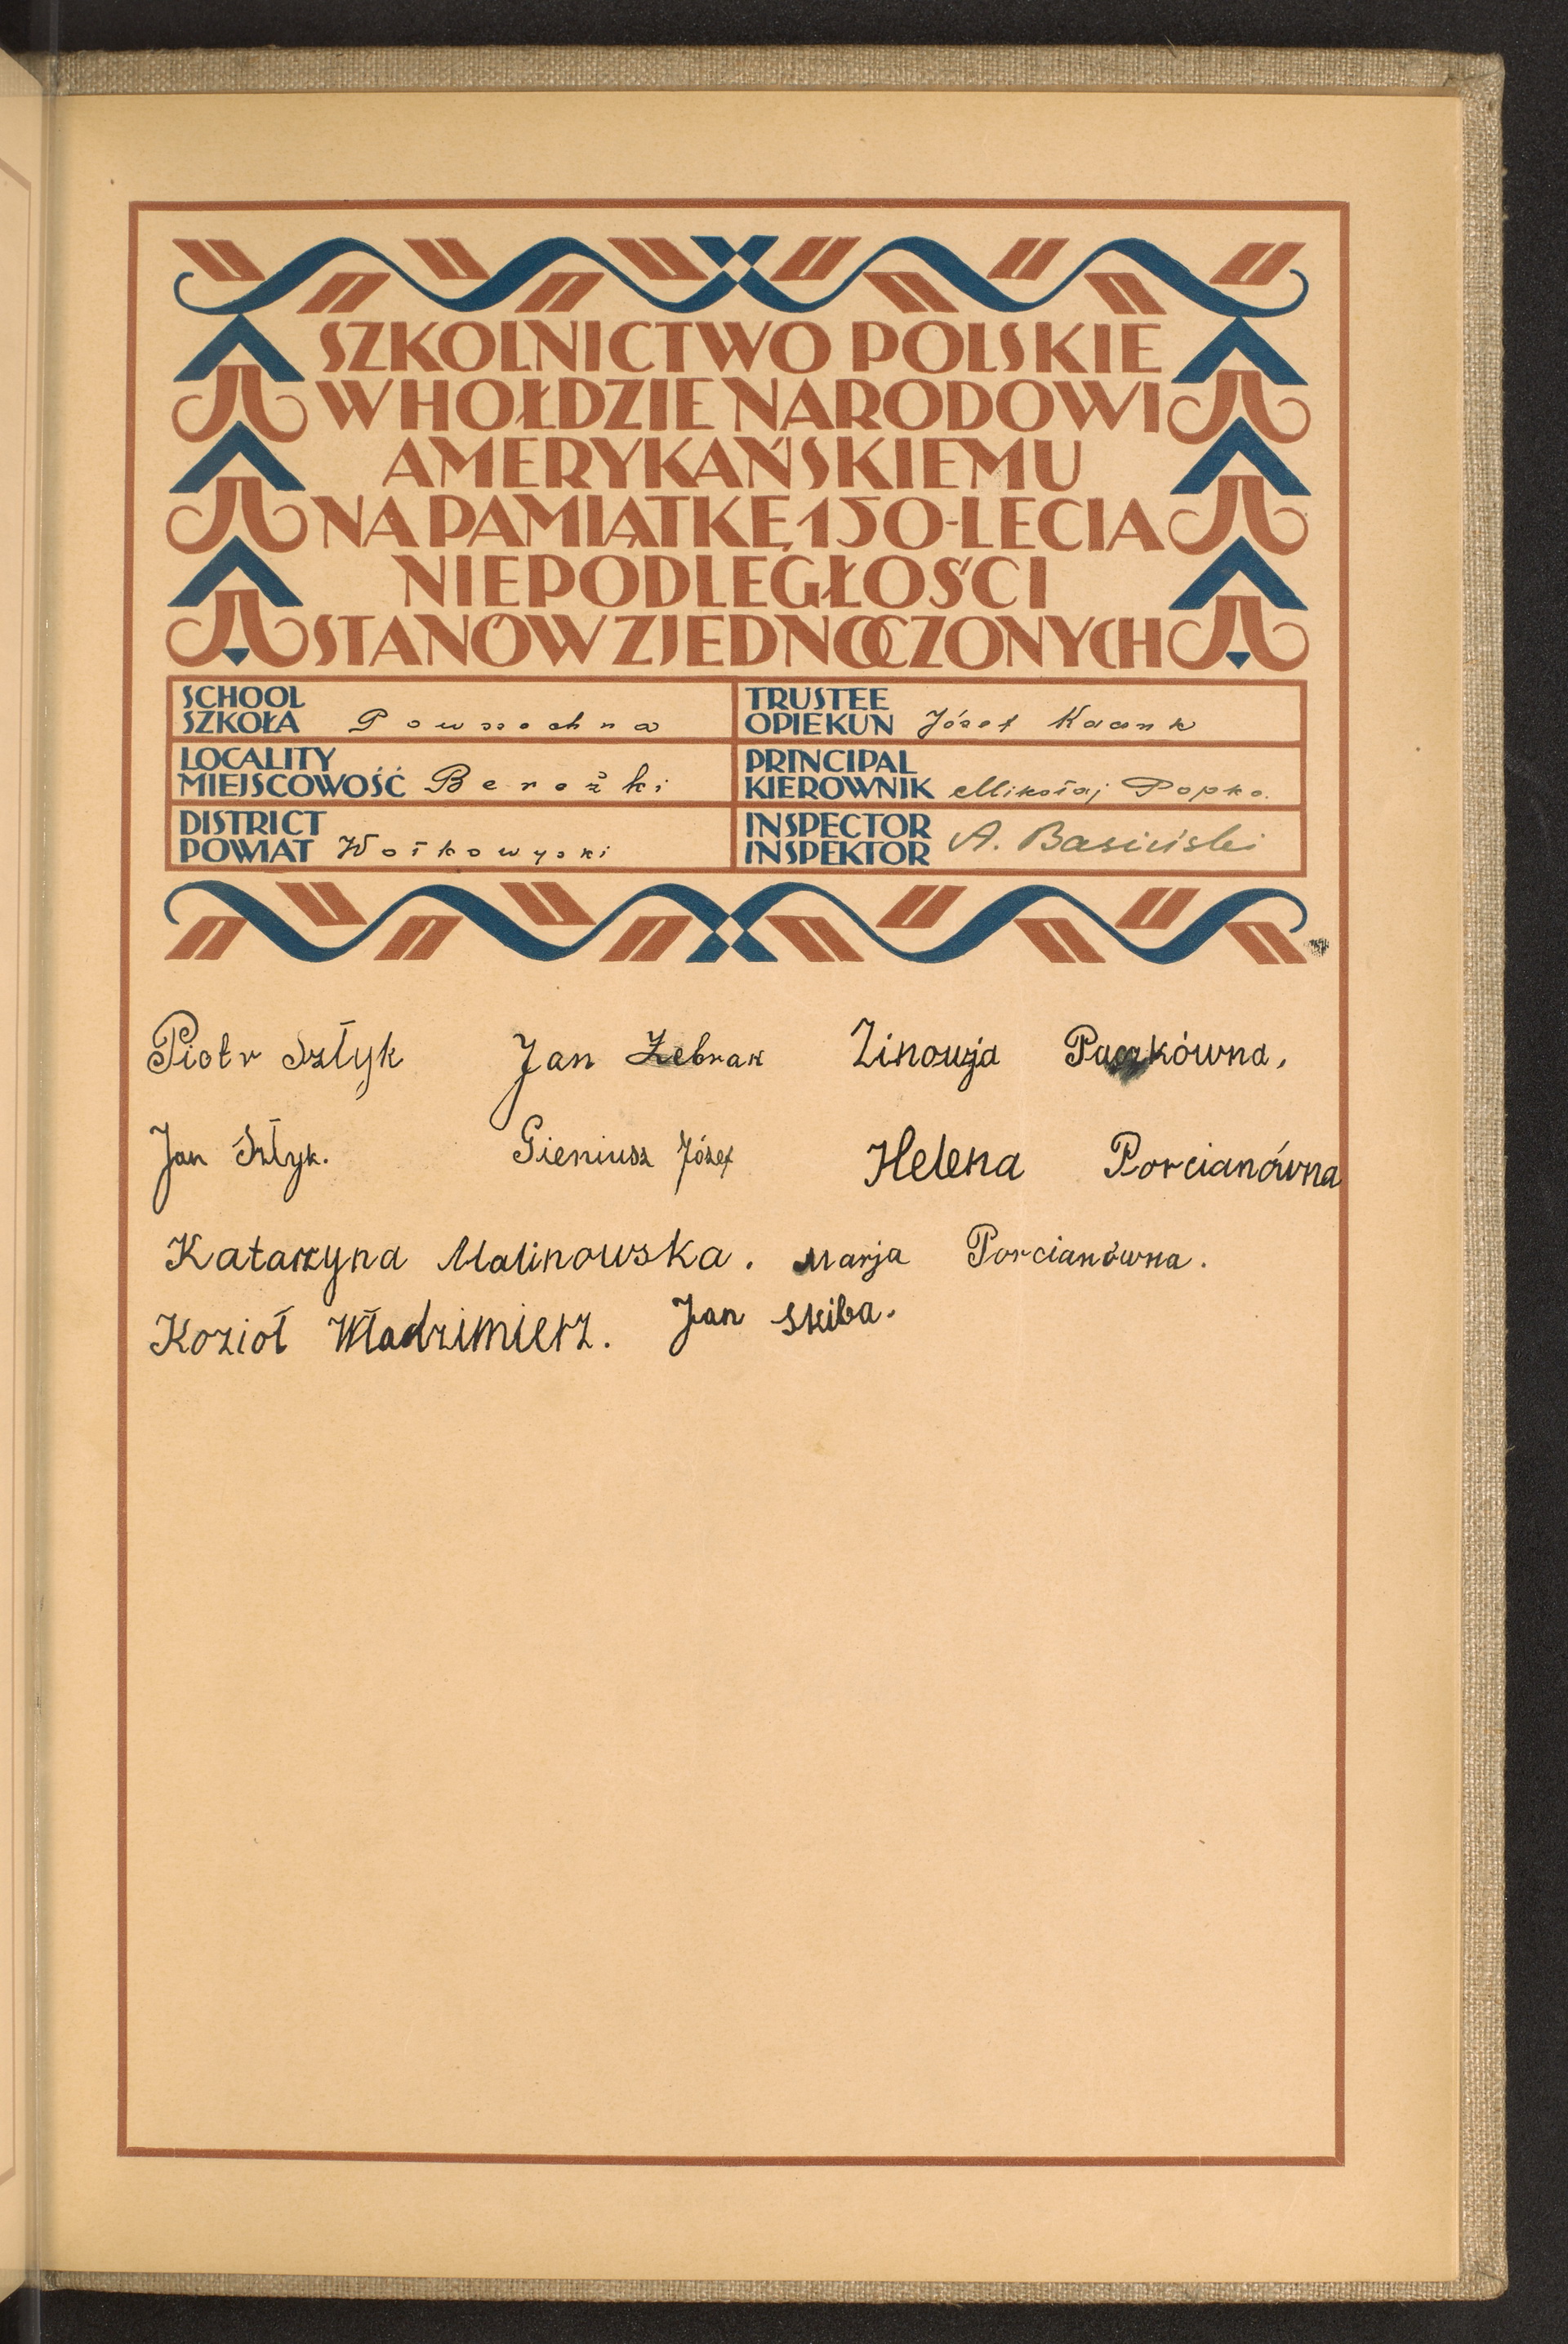 SZKOLNICTWO POLSKIE
W HOŁDZIE NARODOWI
AMERYKAŃSKIEMU
NA PAMIĄTKĘ 150-LECIA
NIEPODLEGŁOŚCI
STANÓW ZJEDNOCZONYCH
SCHOOL
SZKOŁA Powszechna
TRUSTEE
OPIEKUN Józef
LOCALITY
MIEJSCOWOŚĆ Berożki
PRINCIPAL
KIEROWNIK Mikołaj Popko.
DISTRICT
POWIAT Wołkowyski
INSPECTOR
INSPEKTOR A. Basiński
Piotr Szłyk Jan Żebrak Zinowja Paczkówna,
Jan Szłyk. Gieniusz Józef Helena Porcianówna
Katarzyna Malinowska. Marja Porcianówna.
Kozioł Władzimierz. Jan Skiba.